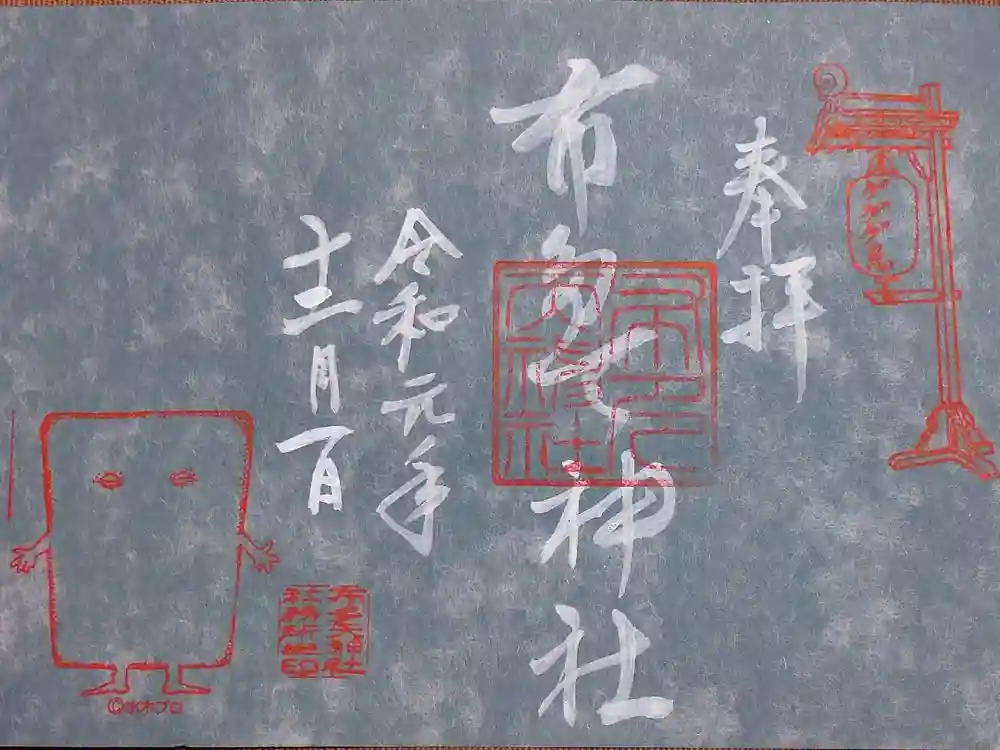 奉拝
布多天神社
布多天神社
令和元年
十二月一日
布多天神社
社務所印
©水木プロ